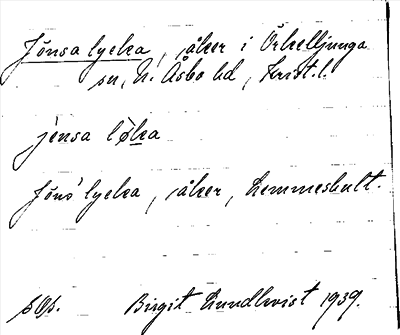 Jönsa lycka, åker i Örkelljunga
sn, N. Åsbo hd, Krist. l.
jènsa lø̀ka
Jöns' lycka, åker, Lemmeshult.
Birgit Lundkvist 1939.